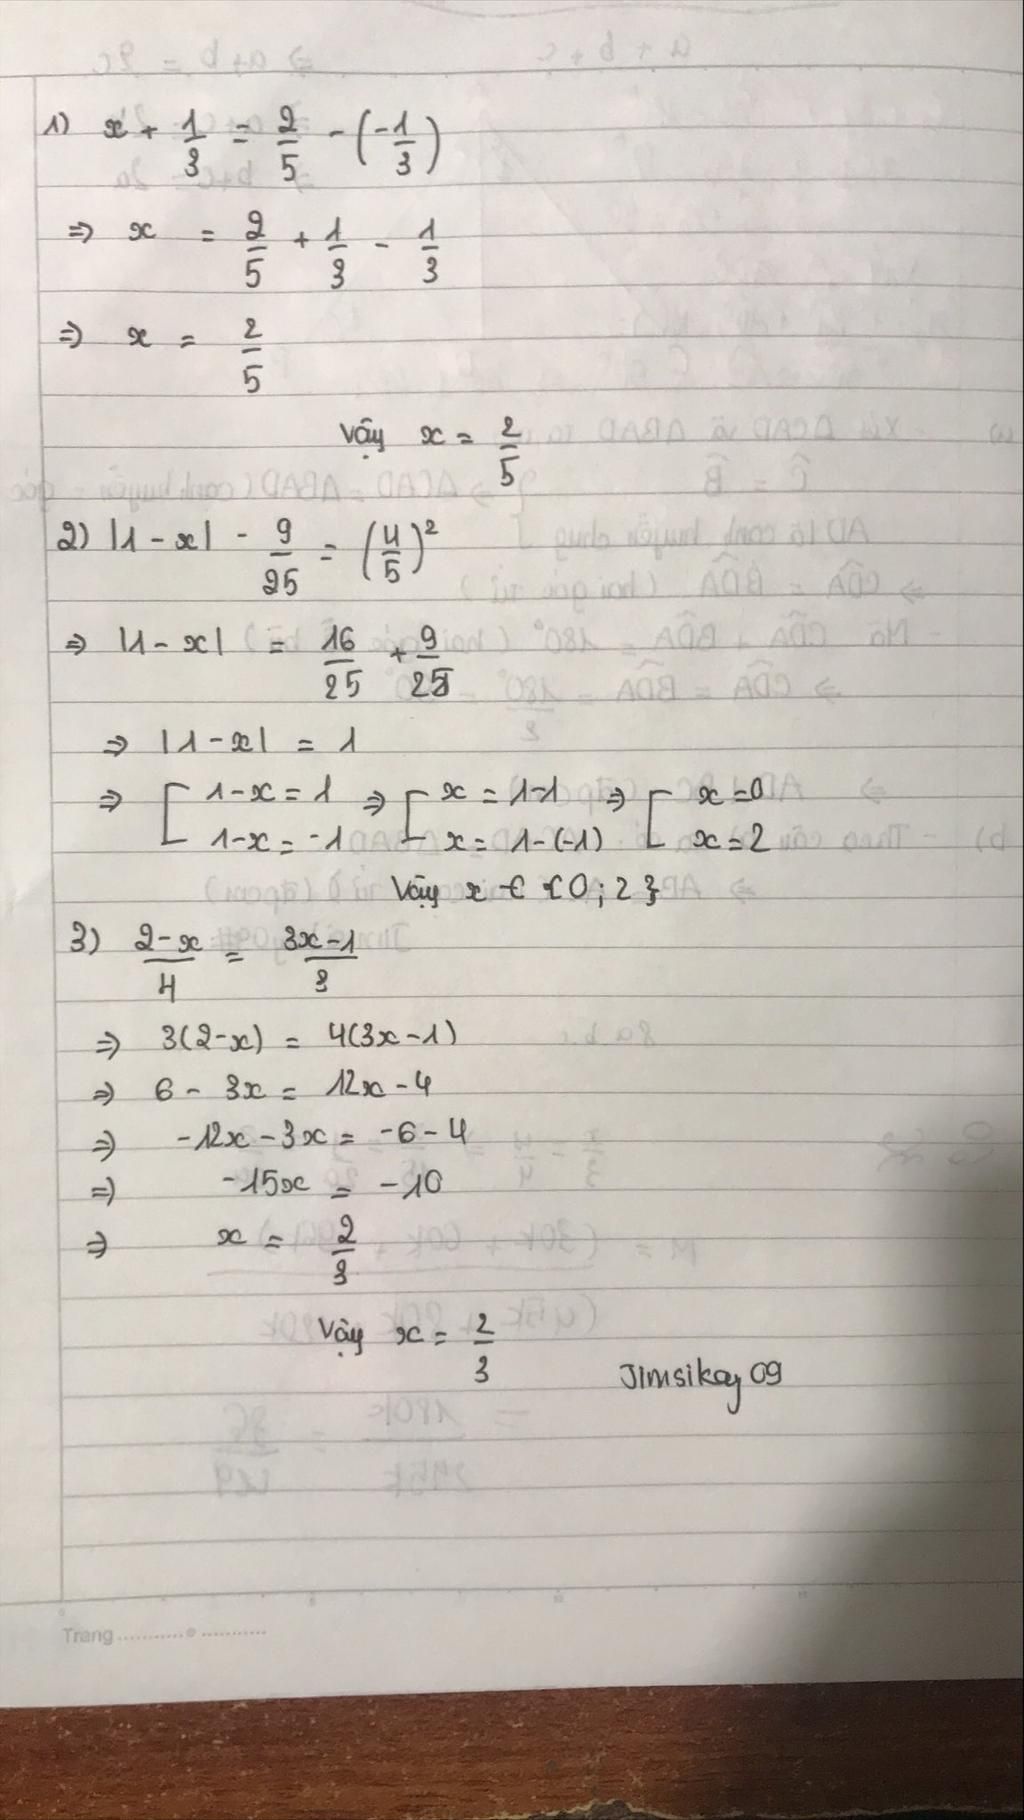 1) x + 1/3 = 2/5 - (-1/3)
⇒ x = 2/5 + 1/3 - 1/3
⇒ x = 2/5
Vậy x = 2/5
2) |1 - x| - 9/25 = (4/5)²
⇒ |1 - x| = 16/25 + 9/25
⇒ |1 - x| = 1
⇒ [ 1 - x = 1 ⇒ [ x = 1 - 1 ⇒ [ x = 0
1 - x = -1 x = 1 - (-1) x = 2
Vậy x ∈ {0; 2}
3) 2-x/4 = 3x-1/3
⇒ 3(2-x) = 4(3x-1)
⇒ 6 - 3x = 12x - 4
⇒ -12x - 3x = -6 - 4
⇒ -15x = -10
⇒ x = 2/3
Vậy x = 2/3
Jimsikay 09
Trang